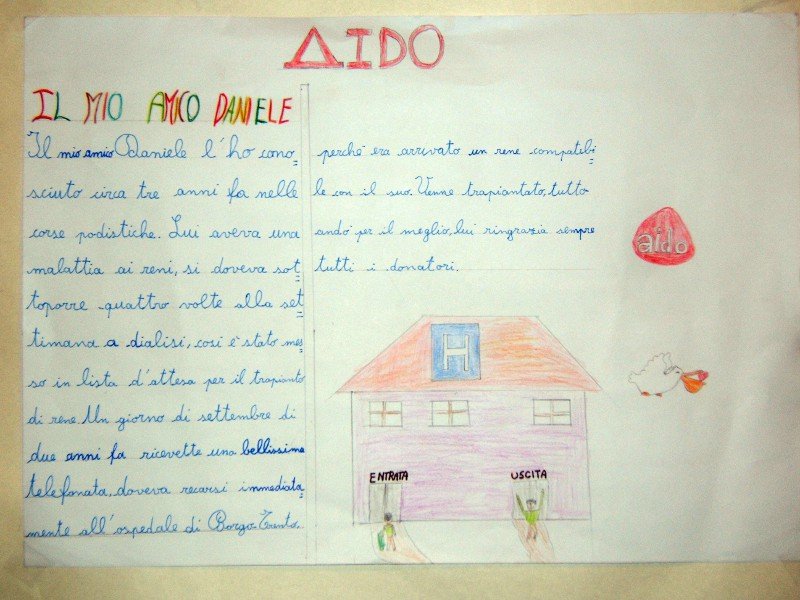 AIDO
IL MIO AMICO DANIELE
Il mio amico Daniele l'ho cono=
sciuto circa tre anni fa nelle
corse podistiche. Lui aveva una
malattia ai reni, si doveva sot=
toporre quattro volte alla set=
timana a dialisi, così è stato mes=
so in lista d'attesa per il trapianto
di rene. Un giorno di settembre di
due anni fa ricevette una bellissima
telefonata, doveva recarsi immediata=
mente all'ospedale di Borgo Trento,
perché era arrivato un rene compatibi=
le con il suo. Venne trapiantato, tutto
andò per il meglio, lui ringrazia sempre
tutti i donatori.
aido
H
ENTRATA
USCITA